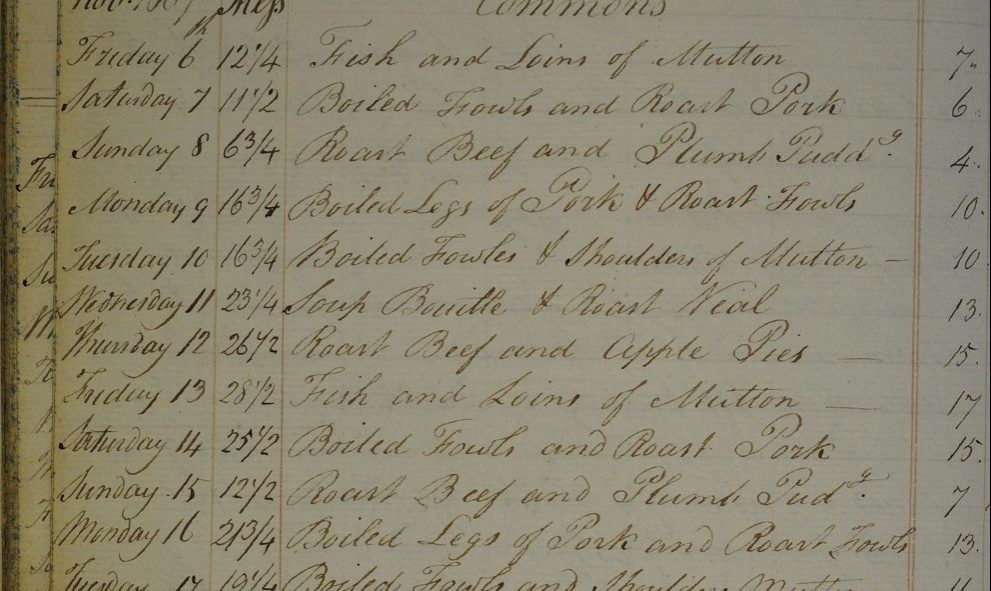 Mess Commons
Friday 6th 12 1/4 Fish and Loins of Mutton 7
Saturday 7 11 1/2 Boiled Fowls and Roast Pork 6
Sunday 8 6 3/4 Roast Beef and Plumb Puddg. 4
Monday 9 16 3/4 Boiled Legs of Pork & Roast Fowls 10
Tuesday 10 16 3/4 Boiled Fowles & Shoulders of Mutton — 10
Wednesday 11 23 1/4 Soup Bouille & Roast Veal 13
Thursday 12 26 1/2 Roast Beef and Apple Pies — 15
Friday 13 28 1/2 Fish and Loins of Mutton — 17
Saturday 14 25 1/2 Boiled Fowls and Roast Pork 15
Sunday 15 12 1/2 Roast Beef and Plumb Pudg. 7
Monday 16 21 3/4 Boiled Legs of Pork and Roast Fowls 13
Tuesday 17 19 1/4 Boiled Fowls and Shoulders Mutton 11